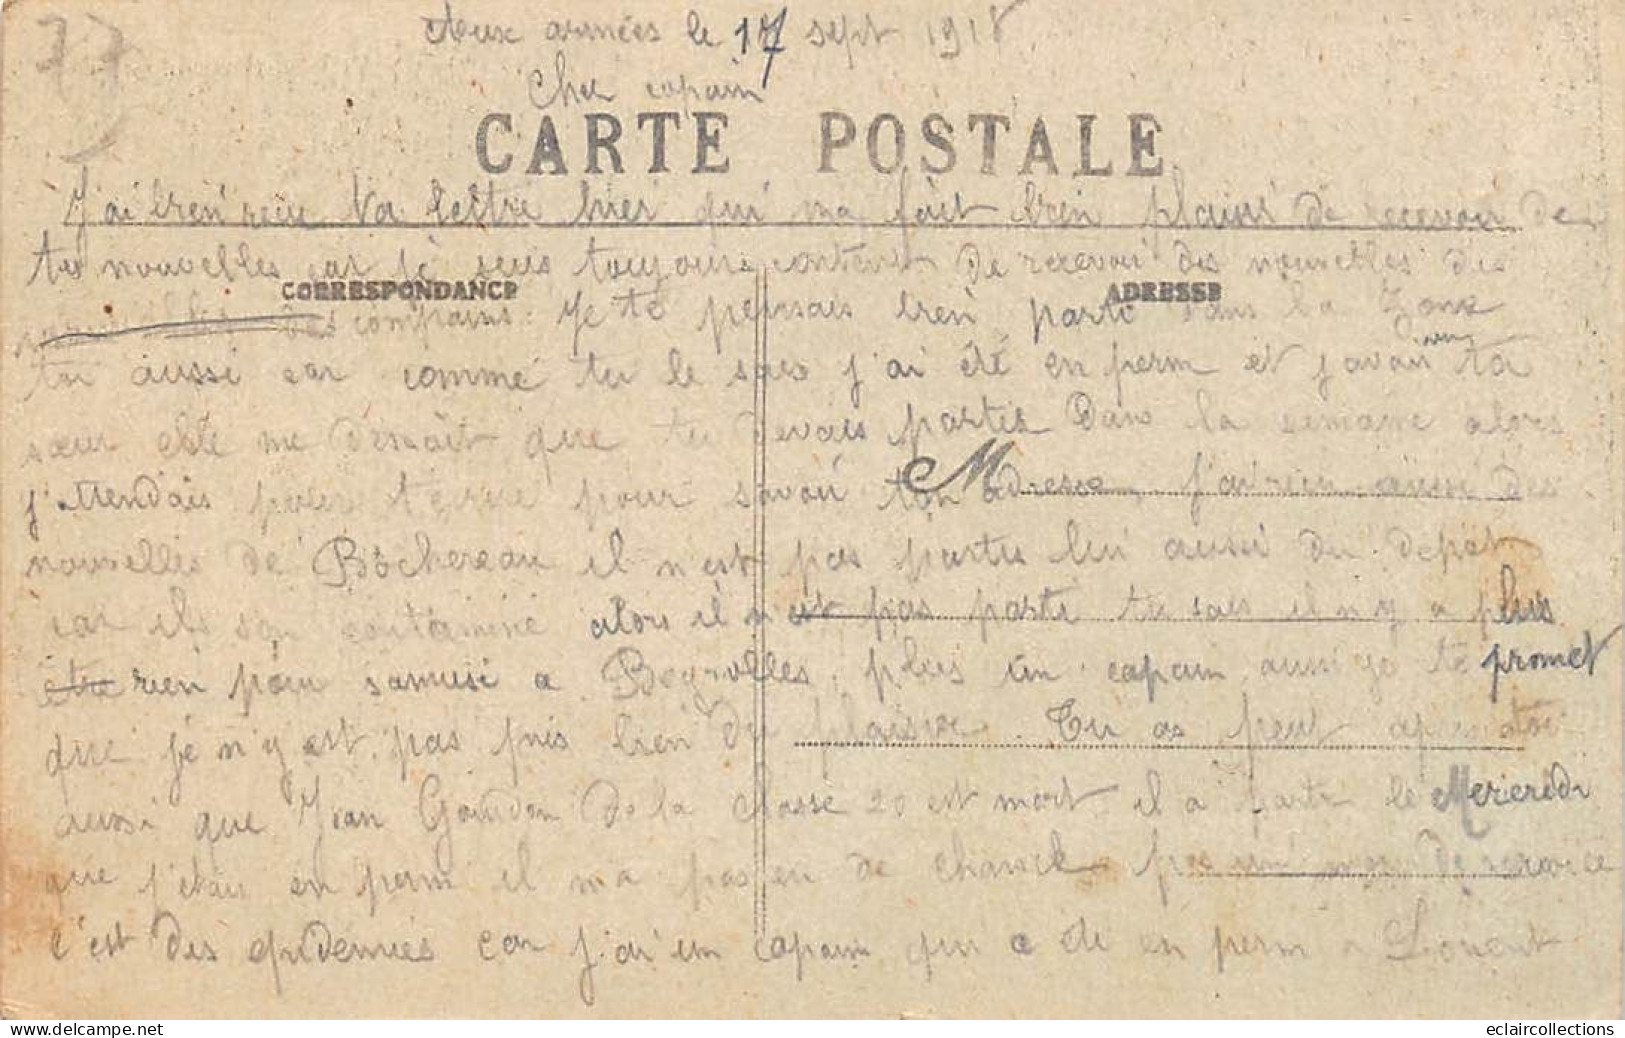 77
Aux armées le 17 sept 1918
Cher copain
CARTE POSTALE
J'ai bien reçu ta lettre hier qui ma fait bien plaisir de recevoir de
tes nouvelles car je suis toujours content de recevoir des nouvelles des
CORRESPONDANCE
ADRESSE
des compains. Je te pensais bien parti dans la zone
toi aussi car comme tu le sais j'ai été en perm et j'avais vu ta
sœur elle me disait que tu devais partir dans la semaine alors
j'attendais pour t'écrire pour savoir ton adresse, j'ai reçu aussi des
M
nouvelles de Bochereau il n'est pas partis lui aussi du depot
car ils son contaminé alors il n'est pas parti tu sais il n'y a plus
être rien pour samusé a plus un copain aussi je te promet
que je n'y est pas pris bien du plaisir. Tu as peut apris toi
aussi que Jean de la classe 20 est mort il a parti le Mercredi
que j'étais en perm il m'a pas eu de chance pas un mois de service
c'est des epidemies car j'ai un copain qui a été en perm a Lorient
eclaircollections